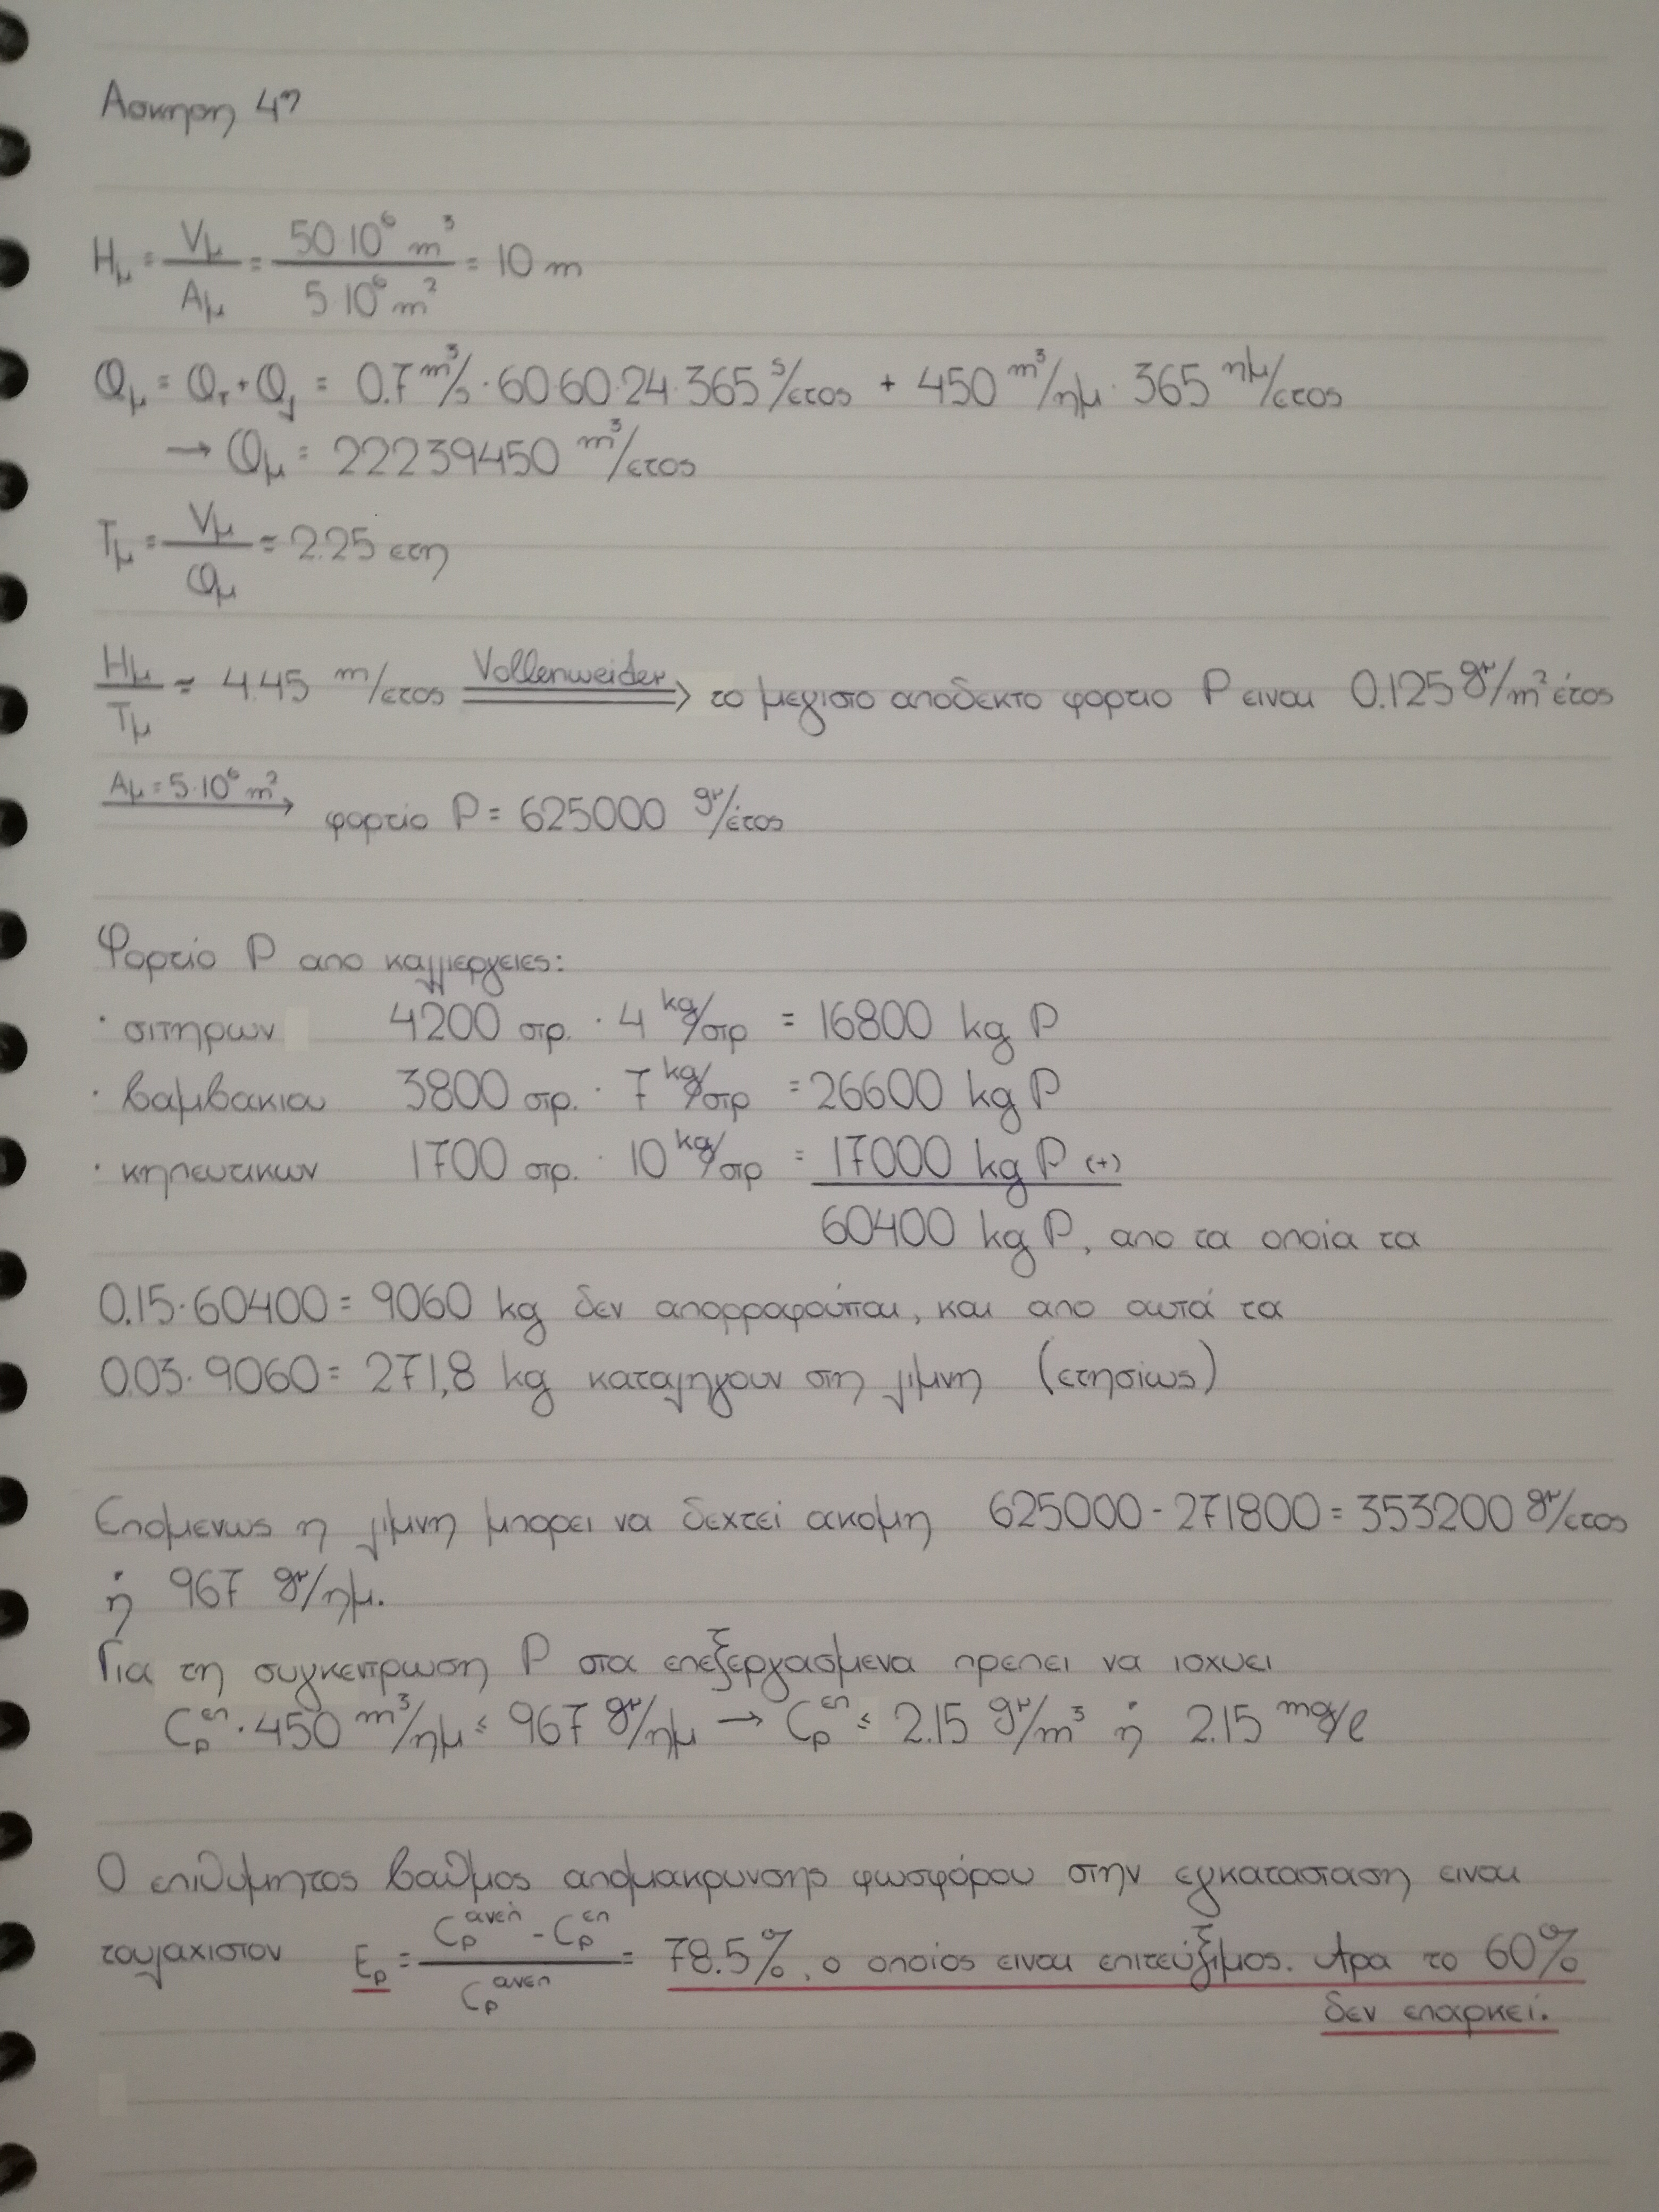 Ασκηση 4η
Hμ = Vμ/Aμ = 50·10⁶ m³ / 5·10⁶ m² = 10 m
Qμ = Qr + Qj = 0.7 m³/s · 60·60·24·365 s/ετος + 450 m³/ημ · 365 ημ/ετος
→ Qμ = 22239450 m³/ετος
Tμ = Vμ/Qμ = 2.25 ετη
Hμ/Tμ = 4.45 m/ετος Vollenweider ⟹ το μεγιστο αποδεκτο φορτιο P ειναι 0.125 gr/m² έτος
Aμ = 5·10⁶ m² → φορτίο P = 625000 gr/έτος
Φορτίο P απο καλλιεργειες:
· σιτηρων 4200 στρ. · 4 kg/στρ = 16800 kg P
· βαμβακιου 3800 στρ. · 7 kg/στρ = 26600 kg P
· κηπευτικων 1700 στρ. · 10 kg/στρ = 17000 kg P (+)
60400 kg P, απο τα οποία τα
0.15·60400 = 9060 kg δεν απορροφούνται, και απο αυτά τα
0.03·9060 = 271,8 kg καταληγουν στη λιμνη (ετησίως)
Επομενως η λιμνη μπορει να δεχτεί ακομη 625000 - 271800 = 353200 gr/ετος
ή 967 gr/ημ.
Για τη συγκεντρωση P στα επεξεργασμενα πρεπει να ισχυει
Cp^επ · 450 m³/ημ ≤ 967 gr/ημ → Cp^επ ≤ 2.15 gr/m³ ή 2.15 mg/l
Ο επιθυμητος βαθμος απομακρυνσης φωσφόρου στην εγκατασταση ειναι
τουλαχιστον Ep = (Cp^ανεπ - Cp^επ)/Cp^ανεπ = 78.5%, ο οποίος ειναι επιτεύξιμος. Αρα το 60%
δεν επαρκεί.